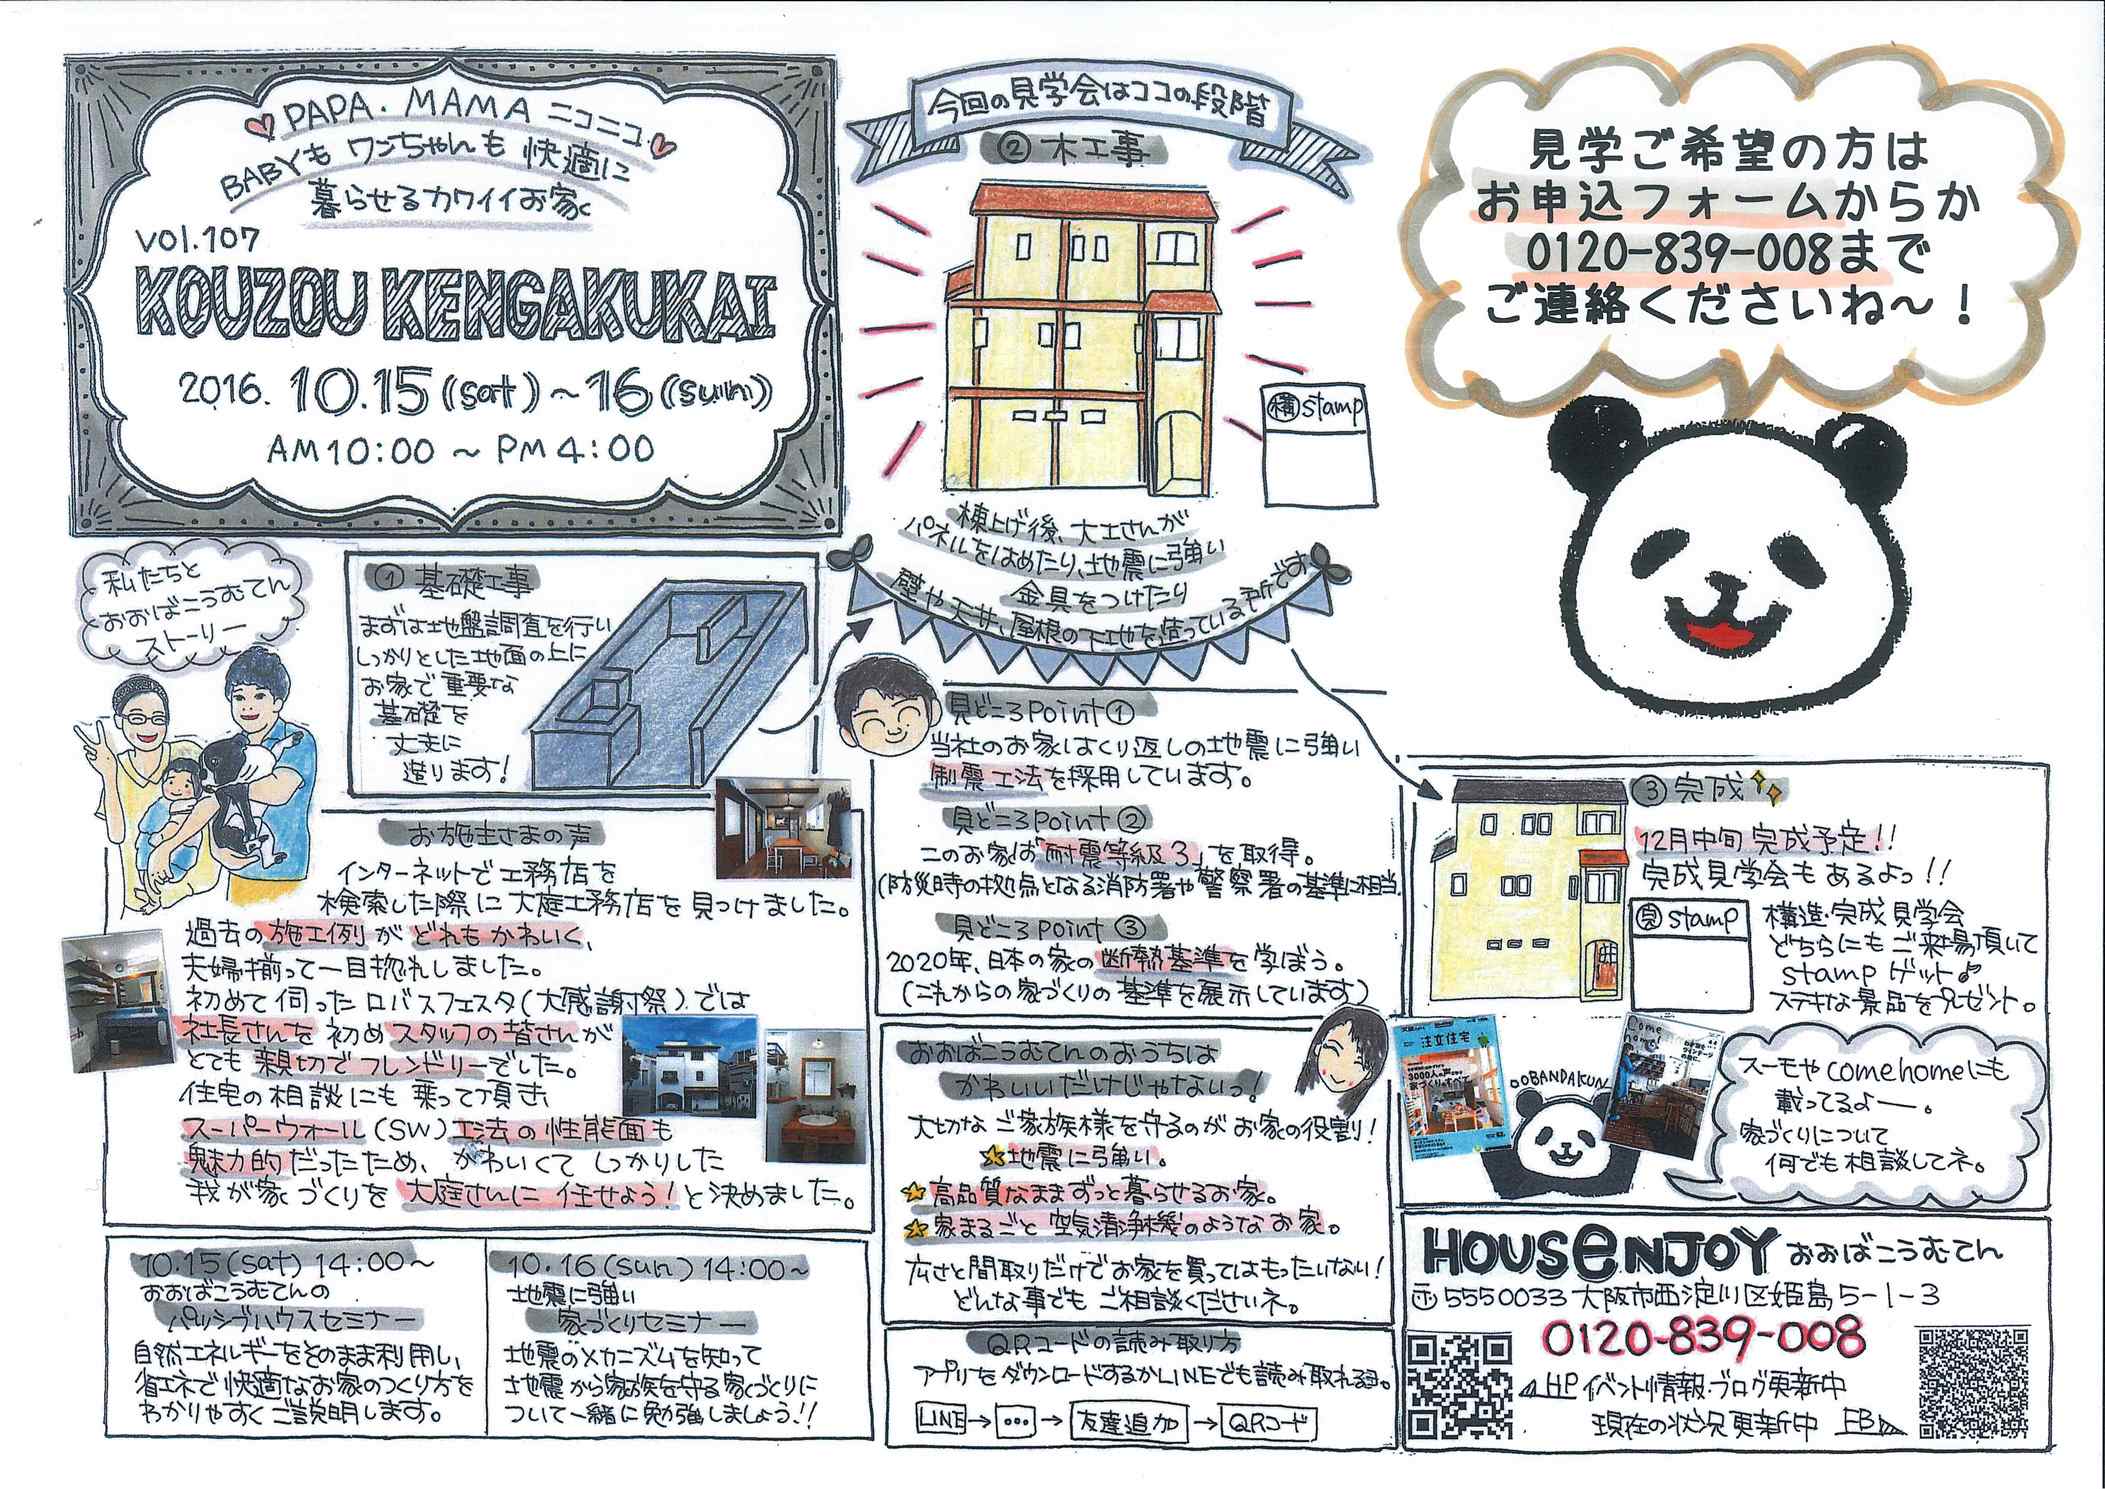 PAPA・MAMA ニコニコ
BABYも ワンちゃんも 快適に
暮らせるカワイイお家
vol.107
KOUZOU KENGAKUKAI
2016. 10.15(sat)～16(sun)
AM10:00 ～ PM4:00
今回の見学会はココの段階
② 木工事
構stamp
棟上げ後、大工さんが
パネルをはめたり、地震に強い
金具をつけたり
壁や天井、屋根の下地を造っている所です
見学ご希望の方は
お申込フォームからか
0120-839-008まで
ご連絡くださいね～！
私たちと
おおばこうむてん
ストーリー
① 基礎工事
まずは地盤調査を行い
しっかりとした地面の上に
お家で重要な
基礎を
丈夫に
造ります!
お施主さまの声
インターネットで工務店を
検索した際に大庭工務店を見つけました。
過去の施工例がどれもかわいく、
夫婦揃って一目惚れしました。
初めて伺ったロバスフェスタ(大感謝祭)では
社長さんを初めスタッフの皆さんが
とても親切でフレンドリーでした。
住宅の相談にも乗って頂き、
スーパーウォール(SW)工法の性能面も
魅力的だったため、かわいくてしっかりした
我が家づくりを大庭さんに任せよう!と決めました。
10.15(sat) 14:00～
おおばこうむてんの
パッシブハウスセミナー
自然エネルギーをそのまま利用し、
省エネで快適なお家のつくり方を
わかりやすくご説明します。
10.16(sun) 14:00～
地震に強い
家づくりセミナー
地震のメカニズムを知って
地震から家族を守る家づくりに
ついて一緒に勉強しましょう!!
見どころpoint①
当社のお家はくり返しの地震に強い
制震工法を採用しています。
見どころpoint②
このお家は「耐震等級3」を取得。
(防災時の拠点となる消防署や警察署の基準に相当
見どころpoint③
2020年、日本の家の断熱基準を学ぼう。
(これからの家づくりの基準を展示しています)
おおばこうむてんのおうちは
かわいいだけじゃないっ!
大切なご家族様を守るのがお家の役割!
☆地震に強い。
☆高品質なままずっと暮らせるお家。
☆家まるごと空気清浄機のようなお家。
広さと間取りだけでお家を買ってはもったいない!
どんな事でもご相談くださいネ。
QRコードの読み取り方
アプリをダウンロードするかLINEでも読み取れるョ。
LINE→・・・→友達追加→QRコード
③ 完成
12月中旬 完成予定!!
完成見学会もあるよっ!!
見stamp
構造・完成見学会
どちらにもご来場頂いて
stampゲット♪
ステキな景品をプレゼント。
注文住宅
3000人の声でわかる
家づくりのすべて
Come
home!
OOBANDAKUN
スーモやcomehomeにも
載ってるよー。
家づくりについて
何でも相談してネ。
HOUSeNJOY おおばこうむてん
〒5550033 大阪市西淀川区姫島5-1-3
0120-839-008
HP イベント情報・ブログ更新中
現在の状況更新中 FB